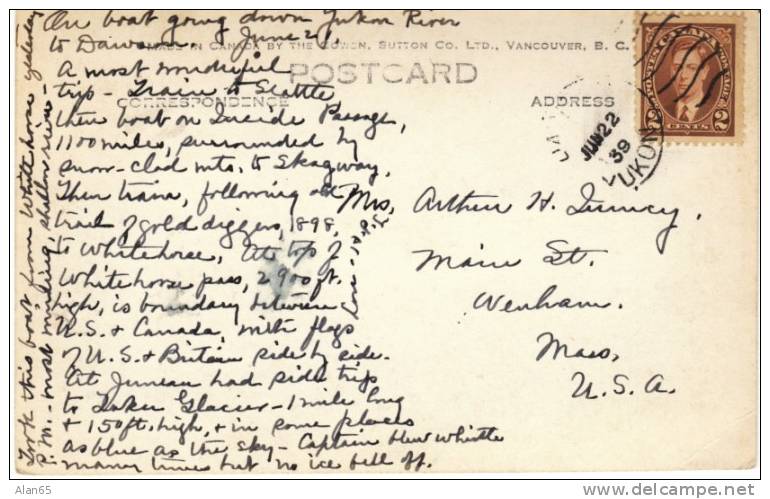 On boat going down Yukon River
to Dawson, June 21.
MADE IN CANADA BY THE GOWEN, SUTTON CO. LTD., VANCOUVER, B. C.
POSTCARD
CORRESPONDENCE
ADDRESS
A most wonderful
trip - Train to Seattle
then boat on Inside Passage,
1100 miles, surrounded by
snow-clad mts, to Skagway,
Then train, following old
trail of gold diggers, 1898,
to Whitehorse, At top of
Whitehorse pass, 2900 ft.
high, is boundary between
U.S. & Canada, with flags
of U.S. & Britain side by side.
At Juneau had side trip
to Taku Glacier - 1 mile long
& 150 ft. high, & in some places
as blue as the sky - Captain blew whistle
many times but no ice fell off.
Took this boat from Whitehorse yesterday
P.M. - most winding, shallow river -
Mrs. Arthur H.
Main St.
Wenham.
Mass,
U.S.A.
JUN 22
39
YUKON
POSTES CANADA POSTAGE
2 CENTS 2
Alan65
www.delcampe.net